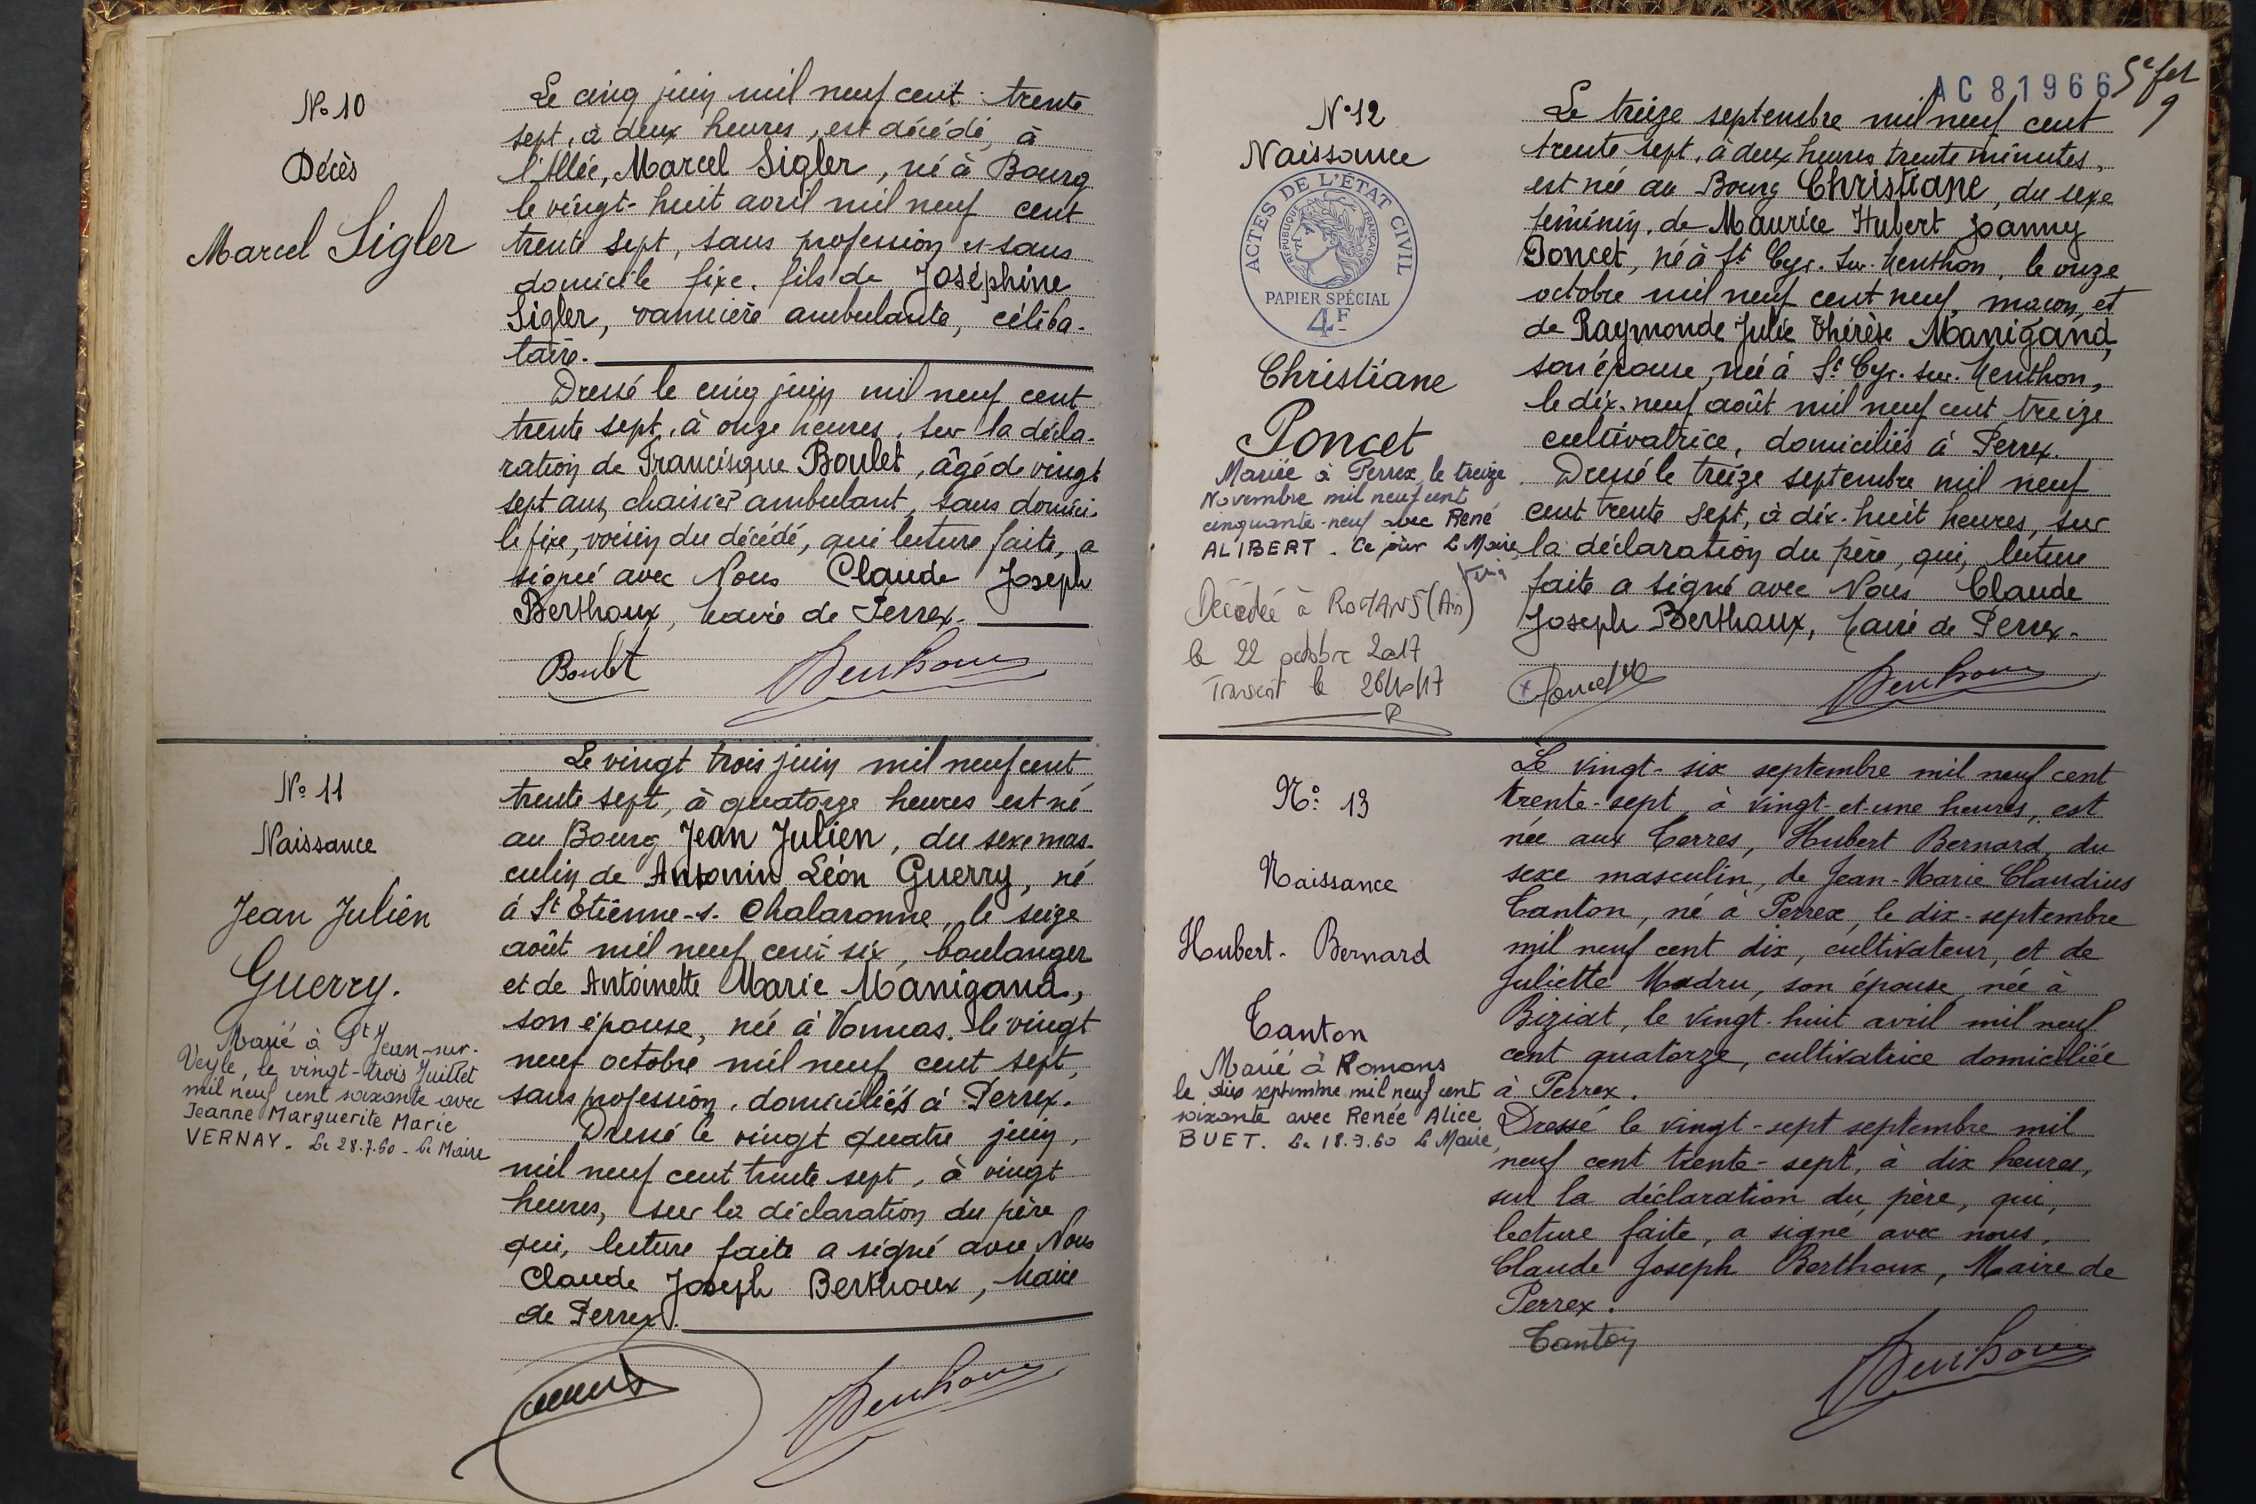 N° 10
Décès
Marcel Sigler
Le cinq juin mil neuf cent trente
sept, à deux heures, est décédé, à
l'Allée, Marcel Sigler, né à Bourg
le vingt-huit avril mil neuf cent
trente sept, sans profession et sans
domicile fixe, fils de Joséphine
Sigler, vannière ambulante, céliba-
taire.
Dressé le cinq juin mil neuf cent
trente sept, à onze heures, sur la décla-
ration de Francisque Boulet, âgé de vingt
sept ans, chaisier ambulant, sans domici-
le fixe, voisin du décédé, qui lecture faite, a
signé avec Nous Claude Joseph
Berthoux, Maire de Perrex.
Boulet Berthoux
N° 11
Naissance
Jean Julien
Guerry.
Marié à St Jean-sur-
Veyle, le vingt-trois Juillet
mil neuf cent soixante avec
Jeanne Marguerite Marie
VERNAY. Le 28.7.60 - Le Maire
Le vingt trois juin mil neuf cent
trente sept, à quatorze heures est né
au Bourg Jean Julien, du sexe mas-
culin de Antonin Léon Guerry, né
à St Etienne-s-Chalaronne, le seize
août mil neuf cent six, boulanger
et de Antoinette Marie Manigand,
son épouse, née à Vonnas, le vingt
neuf octobre mil neuf cent sept,
sans profession, domiciliés à Perrex.
Dressé le vingt quatre juin,
mil neuf cent trente sept, à vingt
heures, sur la déclaration du père
qui, lecture faite a signé avec Nous
Claude Joseph Berthoux, Maire
de Perrex.
Berthoux
AC 81966
5e fet
9
N° 12
Naissance
ACTES DE L'ÉTAT CIVIL
RÉPUBLIQUE FRANÇAISE
PAPIER SPÉCIAL
4F
Christiane
Poncet
Mariée à Perrex le treize
Novembre mil neuf cent
cinquante-neuf avec René
ALIBERT. Ce jour Le Maire
Décédée à ROMANS (Ain)
le 22 octobre 2017
Transcrit le 26/10/17
Le treize septembre mil neuf cent
trente sept, à deux heures trente minutes,
est née au Bourg Christiane, du sexe
féminin, de Maurice Hubert Joanny
Poncet, né à St Cyr-sur-Menthon, le onze
octobre mil neuf cent neuf, maçon, et
de Raymonde Julie Thérèse Manigand,
son épouse, née à St Cyr-sur-Menthon,
le dix-neuf août mil neuf cent treize
cultivatrice, domiciliés à Perrex.
Dressé le treize septembre mil neuf
cent trente sept, à dix-huit heures, sur
la déclaration du père, qui, lecture
faite a signé avec Nous Claude
Joseph Berthoux, Maire de Perrex.
Poncet Berthoux
N° 13
Naissance
Hubert-Bernard
Tanton
Marié à Romans
le dix septembre mil neuf cent
soixante avec Renée Alice
BUET. Le 18.9.60 Le Maire
Le vingt-six septembre mil neuf cent
trente-sept, à vingt-et-une heures, est
née aux Terres, Hubert Bernard, du
sexe masculin, de Jean-Marie Claudius
Tanton, né à Perrex, le dix-septembre
mil neuf cent dix, cultivateur, et de
Juliette Madru, son épouse, née à
Biziat, le vingt-huit avril mil neuf
cent quatorze, cultivatrice domiciliée
à Perrex.
Dressé le vingt-sept septembre mil
neuf cent trente-sept, à dix heures,
sur la déclaration du père, qui,
lecture faite, a signé avec nous,
Claude Joseph Berthoux, Maire de
Perrex.
Tanton Berthoux